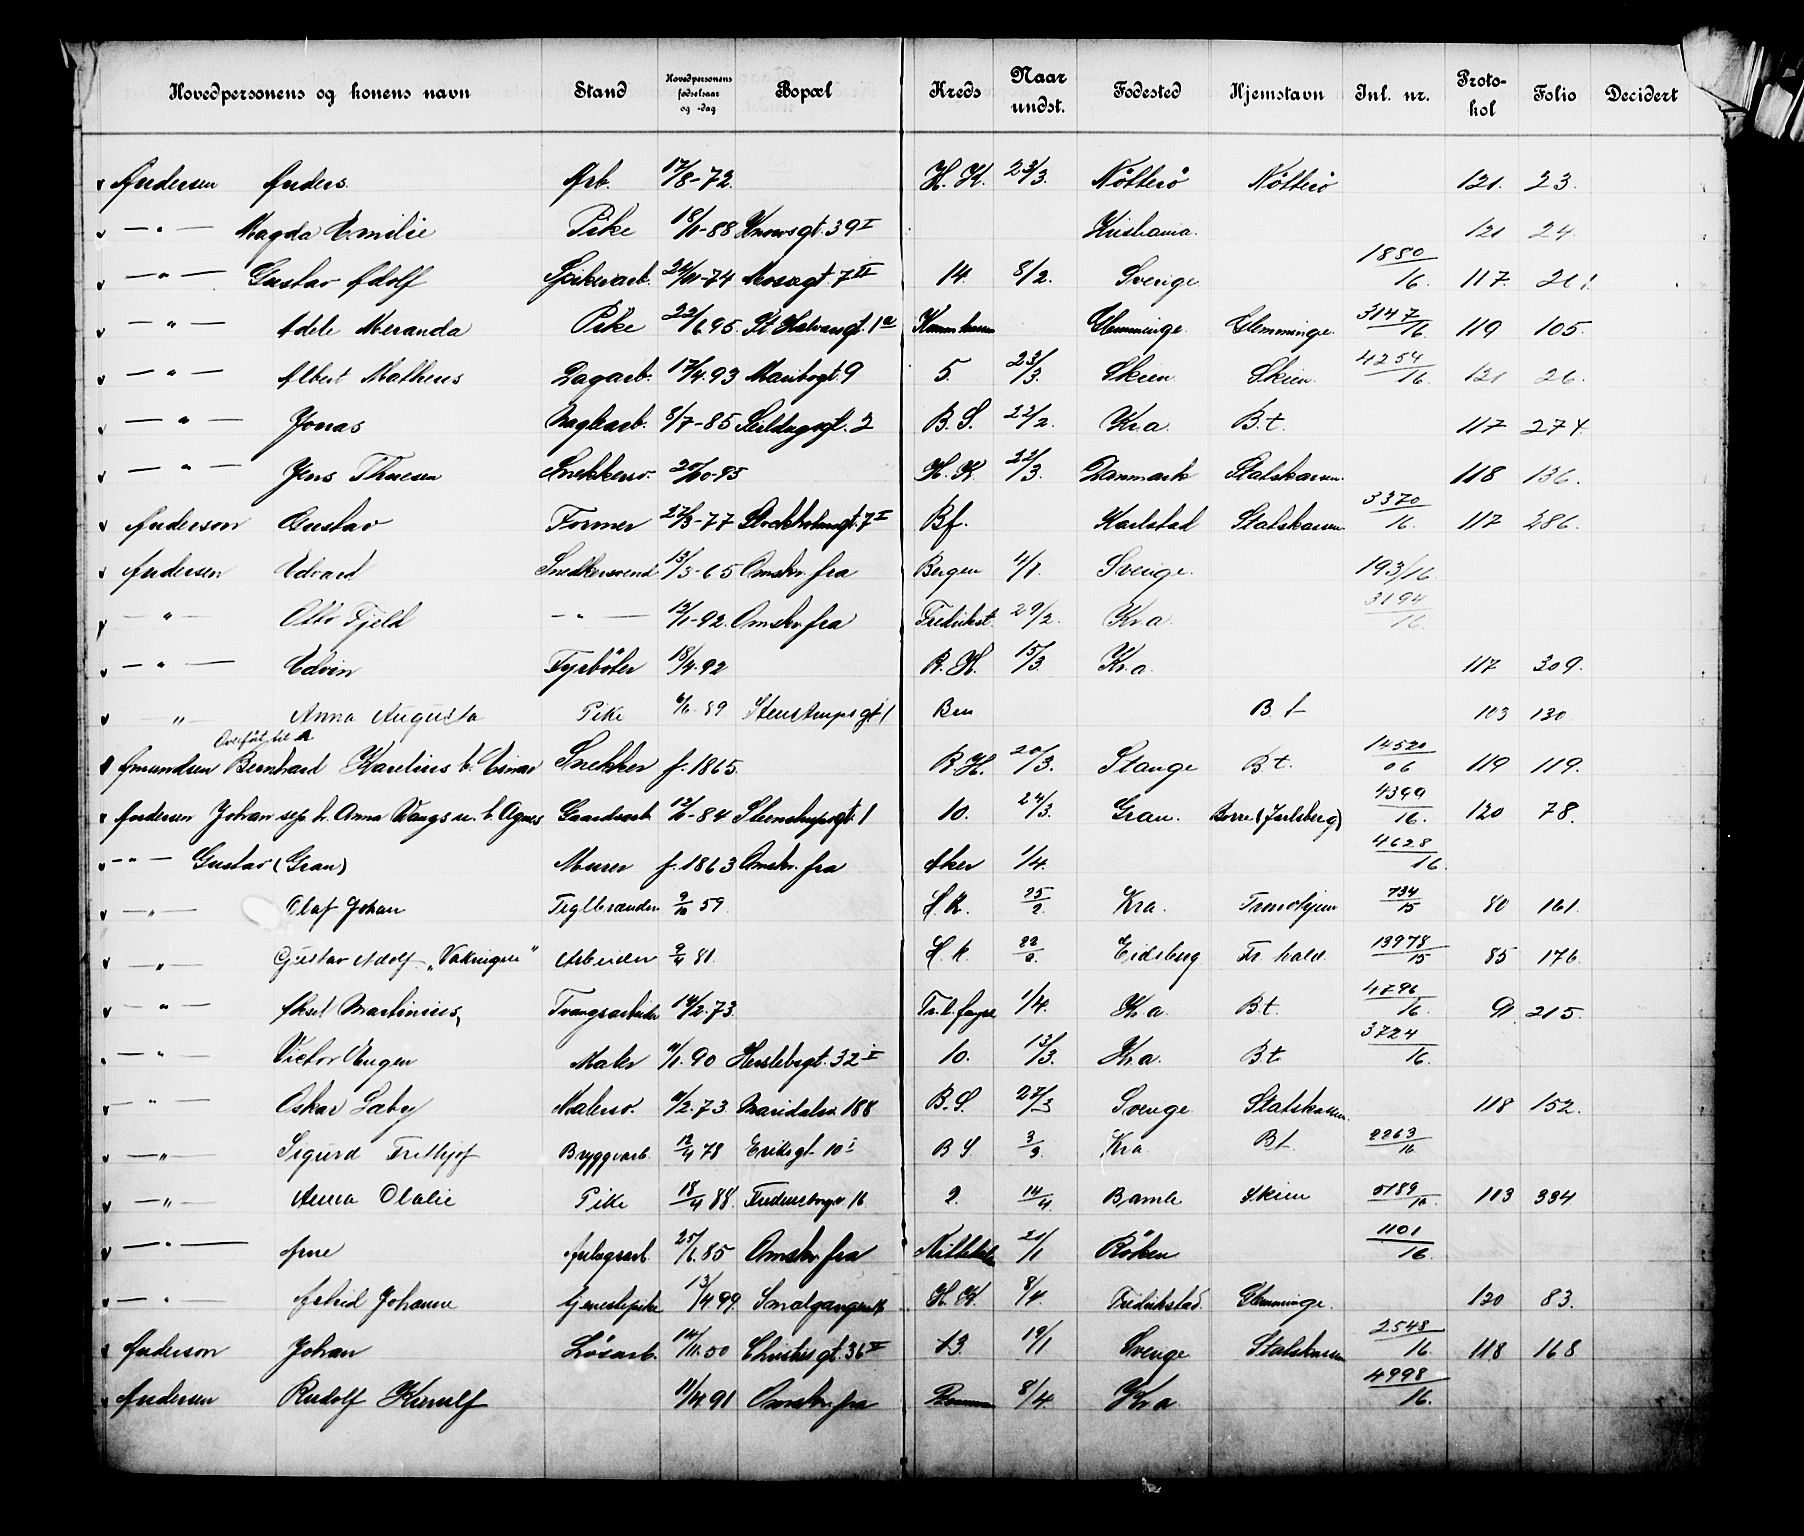 Hovedpersonens og konens navn Stand Hovedpersonens fødselsaar og -dag Bopæl Kreds Naar undst. Fødested Hjemstavn Inl. nr. Protokol Folio Decidert
Andersen Anders. Arb. 17/8-72. H. K. 23/3. Nötterö Nötterö 121. 23.
— " — Magda Emilie Pike 18/1-88 39 I Kristiania. 121 24.
— " — Gustav Adolf Spikerarb. 24/11-74 Mossegt. 7 II 14. 8/2. Sverige. 1880/16. 117. 261.
— " — Adele Meranda Pike 22/6 95. St Halvardsgt. 1 a Glemminge. Glemminge. 3147/16 119 105.
— " — Albert Matheus Dagarb. 17/4.93 Maribogt. 9 5. 23/3. Skien. Skien. 4254/16. 121 26.
— " — Jonas Naglearb. 8/7-85 Seildugsgt. 2 B. S. 22/2. Kr.a. B.t. 117 274.
— " — Jens Thuesen Snekkersv. 20/10-95 H. K. 22/3. Danmark Statskassen. 118 136.
Anderson Gustav Former 27/3-77 Stockholmsgt. 7 I Bf. Karlstad Statskassen. 3370/16. 117 286.
Andersen Edvard Snedkersvend 13/3-65 Omskr. fra Bergen 4/1. Sverige. 193/16
— " — Otto Fjeld — " — 12/1-92. Omskr. fra Fredrikst. 29/2. Kr.a. 3194/16.
— " — Edvin Fyrböter 18/4.92 B. H. 15/3. Kr.a. 117 309.
" — Anna Augusta Pike 6/6 89 Stenstrupsgt 1 Ben B t 103 130
Overfört til A
Amundsen Bernhard Karelius b. Einar Snekker f. 1865. B.H. 20/3. Stange B.t. 14520/06 119 119.
Andersen Johan sep. h. Anna b. Agnes Gaardsarb. 12/6-84 Stenstrupsgt. 1 10. 24/3. Gran. Borre (Jarlsberg) 4399/16. 120 78.
— " — Gustav (Gran) Murer f. 1863 Omskr. fra Aker 1/4. 4628/16.
— " — Olaf Johan Teglbrænder 9/10 59. H. K. 25/2. Kra. Trondhjem 734/15 80 161.
— " — Gustav Adolf "Vakringen" Arbeider 9/4 81. H. K. Eidsberg Fr. hald. 13978/15 85 176.
— " — Aksel Martinius, Tvangsarbeider 14/2.73. 1/4. Kr.a. B.t. 4796/16. 91. 215.
— " — Victor Eugen Maler 11/1. 90 Herslebsgt. 32 I 10. 13/3. Kr.a. B.t. 3724/16.
— " — Oskar Laby Malersv. 11/2.73. Maridalsv. 188 B.S. 27/3 Sverige Statskassen. 118 152.
— " — Sigurd Fritthjof Bryggearb. 12/4 78 Eriksgt 10 I B S 3/3. Kra B t. 2263/16
— " — Anna Olalie Pike 18/4 88. Fredensborgv 16 2. 14/4. Bamle Skien 5189/16. 113 334.
— " — Arne Anlegsarb. 25/6.85 Omskr. fra Nittedalen 21/1 Röken 1101/16.
— " — Astrid Johanne tjenestepike 13/4.99. Smalgangen 16 H. K. 8/4. Fredrikstad. Glemminge. 120 83.
Anderson Johan Lösarb. 14/11.50 Christiesgt. 36 II 13. 19/1 Sverige Statskassen 2548/16. 118 168
Andersen Rudolf Kierulf 11/4.91 Omskr. fra 8/4. Kr.a 4998/16.